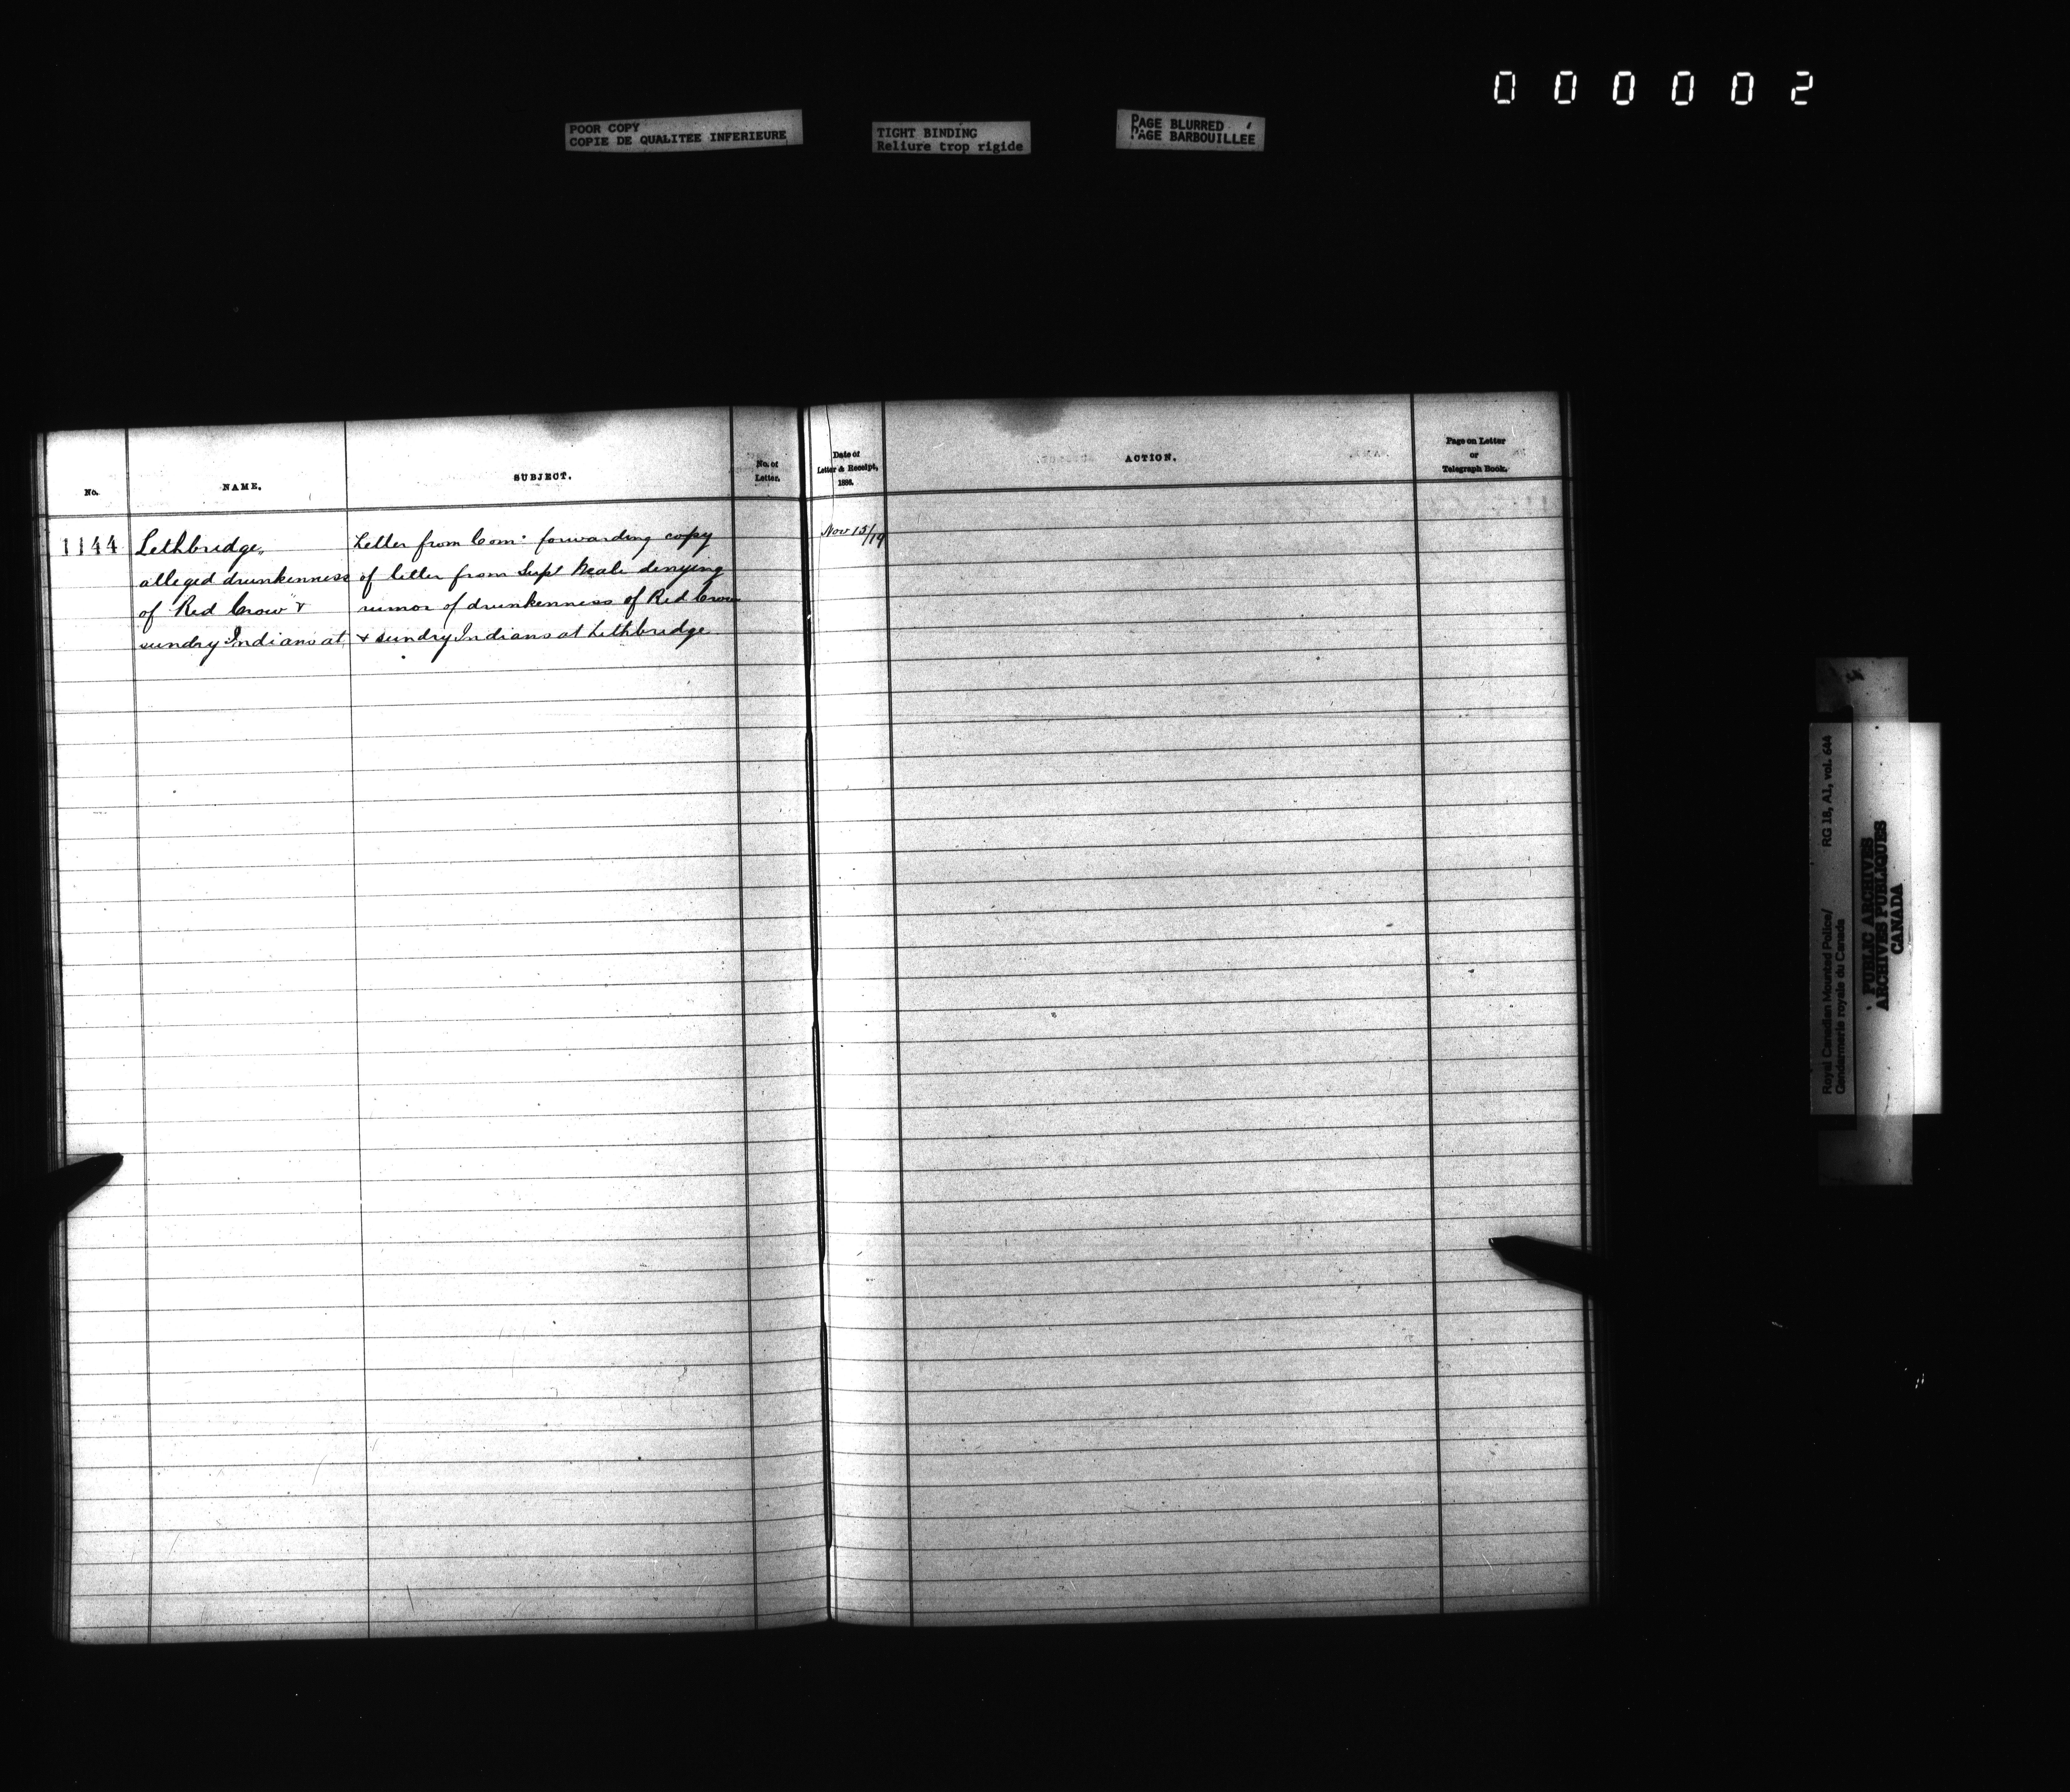 000002
POOR COPY
COPIE DE QUALITEE INFERIEURE
TIGHT BINDING
Reliure trop rigide
PAGE BLURRED
PAGE BARBOUILLEE
No.
NAME.
SUBJECT.
No. of
Letter.
Date of
Letter & Receipt,
1886.
ACTION.
Page on Letter
or
Telegraph Book.
1144
Lethbridge,
alleged drunkenness
of "Red Crow" &
sundry Indians at
Letter from Com. forwarding copy
of letter from Supt Neale denying
rumor of drunkenness of Red Crow
& sundry Indians at Lethbridge
Nov 15/19
Royal Canadian Mounted Police/
Gendarmerie royale du Canada
RG 18, A1, vol. 644
PUBLIC ARCHIVES
ARCHIVES PUBLIQUES
CANADA